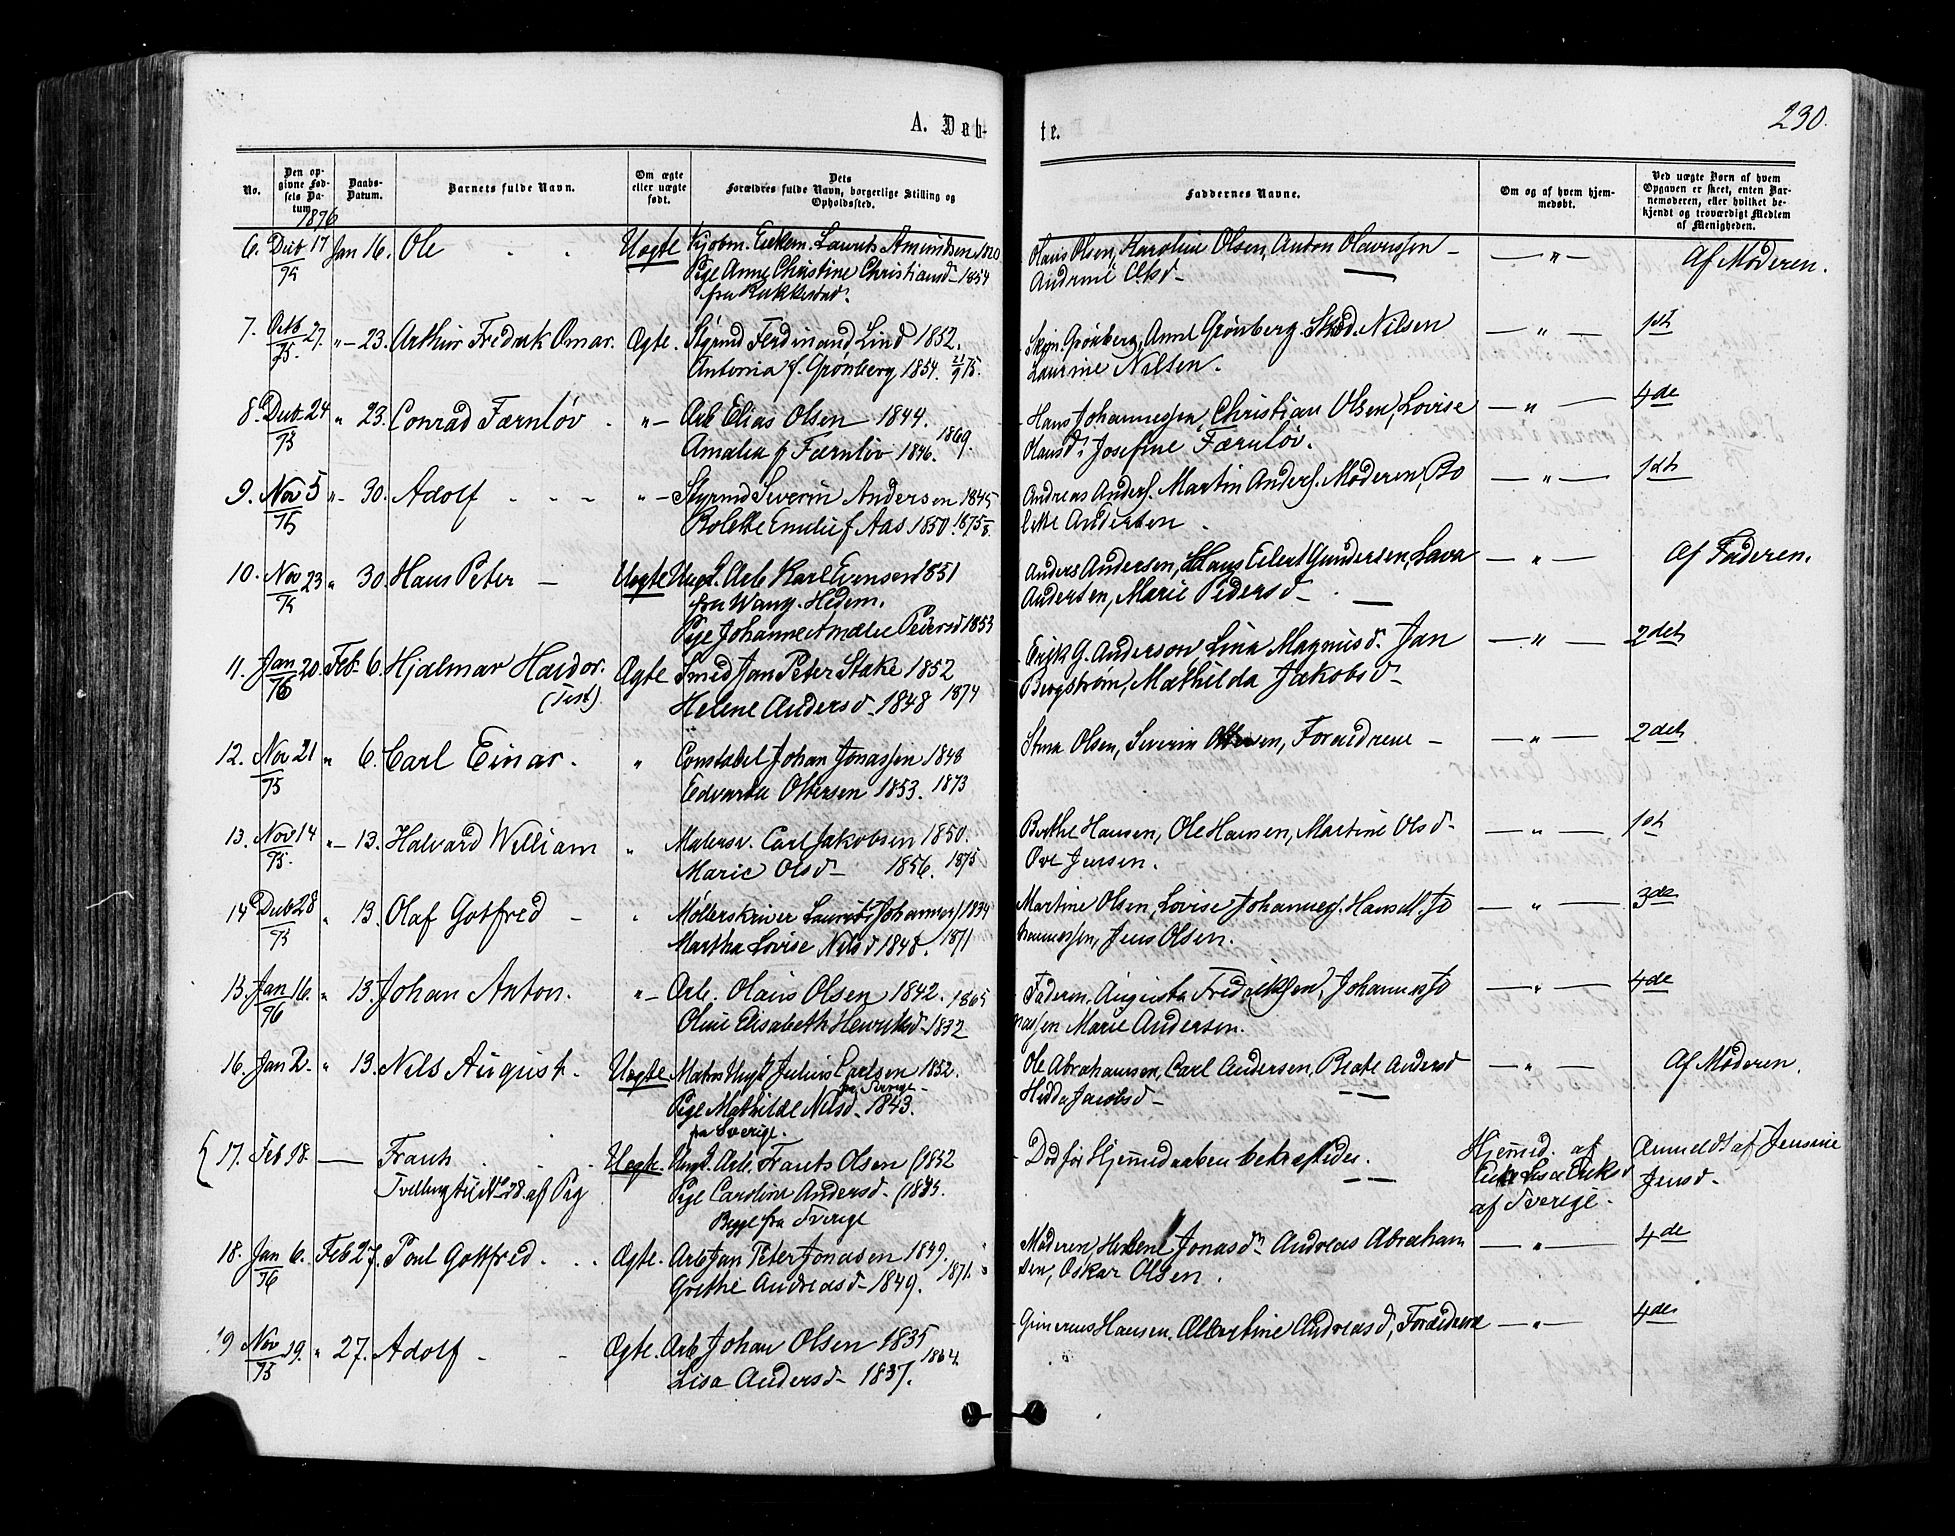 A. Døb-
te.
230.
No.
Den op-
givne Fød-
sels Da-
tum.
1876
Daabs-
Datum.
Barnets fulde Navn.
Om ægte
eller uægte
født.
Dets
Forældres fulde Navn, borgerlige Stilling og
Opholdssted.
Faddernes Navne.
Om og af hvem hjem-
medøbt.
Ved uægte Børn af hvem
Opgaven er skeet, enten Bar-
nemoderen, eller hvilket be-
kjendt og troværdigt Medlem
af Menigheden.
6. Decb 17 Jan 16. Ole Uægte Laurits Amundsen
75 Pige Anne Christine Christiansd 1854
fra Rakkestad.
Olaus Olsen, Karoline Olsen, Anton Olaussen — " — Af Moderen.
Andrine Olsd
7. Octb 27. "- 23. Arthur Fredrik Omar. Ægte. Styrmd Ferdinand Lind 1852.
75. Antonia f. Grønberg 1854. 21/9 75.
Grønberg, Anne Grønberg. Nilsen — " — 1ste
Laurine Nilsen.
8. Decb. 24 " 23. Conrad Færnløv. "- Arb Elias Olsen 1844.
75 Amalia f Færnløv 1846. 1869.
Hans Johannessen, Christian Olsen, Lovise — " — 4de
Hansd. Josefine Færnløv.
9. Nov 5 "- 30. Adolf "- Styrmd Severin Andersen 1845
75 Bolette Emilie f Aas 1850. 1875
Andreas Anders. Martin Anders. Moderen, Bo — " — 1ste
lette Andersen
10. Nov 23 " 30. Hans Peter — Uægte Ungk. Arb Karl Evensen 1851
75 fra Wang. Hedem.
Pige Johanne Amalie Pedersd 1853
Anders Andersen, Hans Eilert Gundersen, Lava — " — Af Faderen.
Andersen, Marie Pedersd
11. Jan 20. Feb 6. Hjalmar Haldor. Ægte Smed Jan Peter Stake 1852
76 Helene Andersd 1848 1874
Erik G. Anderson Lina Magnusd. Jan — " — 2det
Bergstrøm, Mathilda Jakobsd
12. Nov 21 " 6. Carl Einar. " Constabel Johan Jonassen 1848
75 Edvarda Ottersen 1853. 1873
Stina Olsen, Severin Olsen, Forældrene — " — 2det
13. Nov 14 "- 13. Halvard William " Malersv. Carl Jakobsen 1850.
75. Marie Olsd 1856. 1875
Berthe Hansen, Ole Hansen, Martine Olsd — " — 1ste
Ove Jensen.
14 Decb 28 " 13. Olaf Gotfred " Møllerskriver Laurits Johannes. 1834
75 Martha Lovise Nilsd 1848. 1871
Martine Olsen, Lovise Johannes. Hans M. Jo — " — 3de
hannessen, Jens Olsen.
15. Jan 16. " 13. Johan Anton. "- Arb. Olaus Olsen 1842. 1865
76 Oline Elisabeth Henriksd 1832
Faderen. Augusta Fredriksen, Johannes Jo — " — 4de
nassen Marie Andersen.
16. Jan 2. " 13. Nils August. Uægte Matros Ungk. Julius Carlsen 1852.
fra Sverige
Pige Mathilde Nilsd. 1843.
fra Sverige.
Ole Abrahamsen, Carl Andersen, Beate Andersd — " — Af Moderen.
Hedda Jacobsd
17. Feb 18. — Frants Uægte. Ungk. Arb. Frants Olsen 1852
Tvilling til No 28. af Pig Pige Carolina Andersd
Begge fra Sverige
Død før Hjemmedaaben bekræftedes. Hjemmed. af Anmeldt af Jensine
Eriksd Jensd
af Sverige.
18. Jan 6. Feb 27. Poul Gottfred. Ægte. Arb Jan Peter Jonasen 1849.
76 Grethe Andreasd 1849. 1871.
Moderen, Helene Jonasd Andreas Abraham — " — 4de
sen, Oskar Olsen.
19 Nov 19. " 27. Adolf Ægte. Arb Johan Olsen 1835
75 Lisa Andersd 1837. 1864.
Hansen. Albertine Andreasd, Forældrene — " — 4de